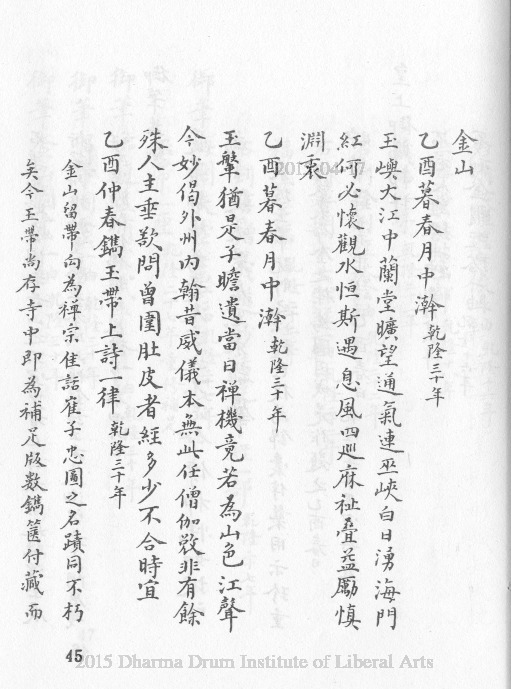 金山
乙酉暮春月中澣乾隆三十年
玉嶼大江中蘭堂曠望通氣連巫峽白日湧海門
紅何必懷觀水恒斯遇息風四巡庥祉疊益勵慎
淵衷
乙酉暮春月中澣乾隆三十年
玉鞶猶是子瞻遺當日禅機竟若為山色江聲
今妙偈外州内翰昔威儀本無此任僧伽
非有餘
殊人主垂欵問曾圍肚皮者經多少不合時宜
乙酉仲春鐫玉帶上詩一律乾隆三十年
金山留帶向為禅宗佳話崔子忠圖之名蹟同不朽
矣今玉帶尚存寺中即為補足版數鐫篋付藏而
45
2015 Dharma Drum Institute of Liberal Arts